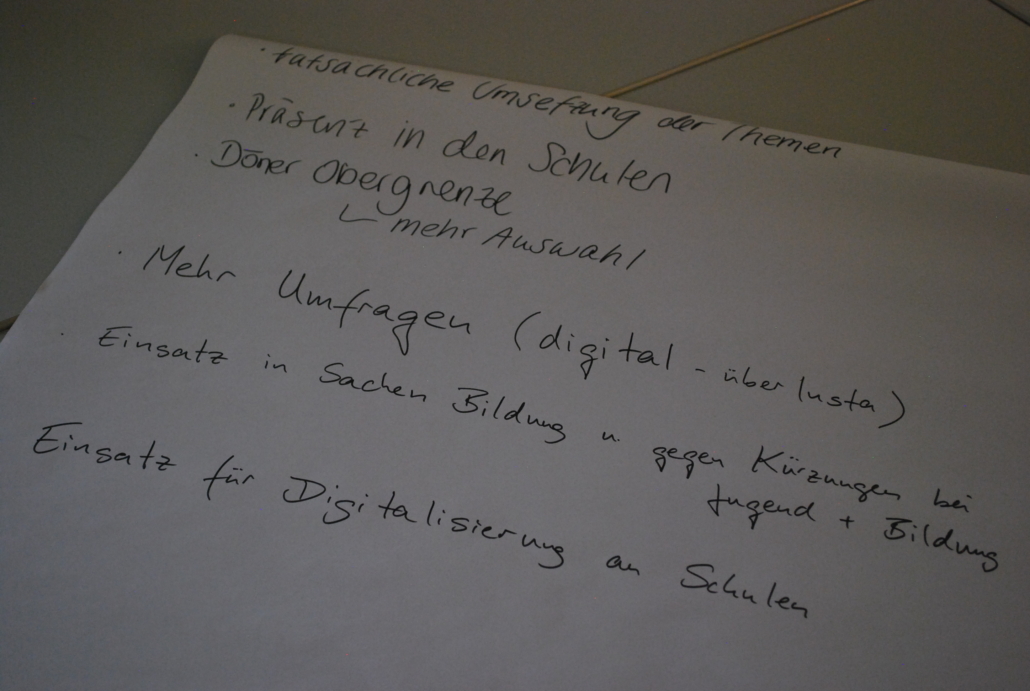 · tatsächliche Umsetzung der Themen
· Präsenz in den Schulen
· Döner Obergrenze
mehr Auswahl
· Mehr Umfragen (digital - über Insta)
· Einsatz in Sachen Bildung u. gegen Kürzungen bei
Jugend + Bildung
Einsatz für Digitalisierung an Schulen